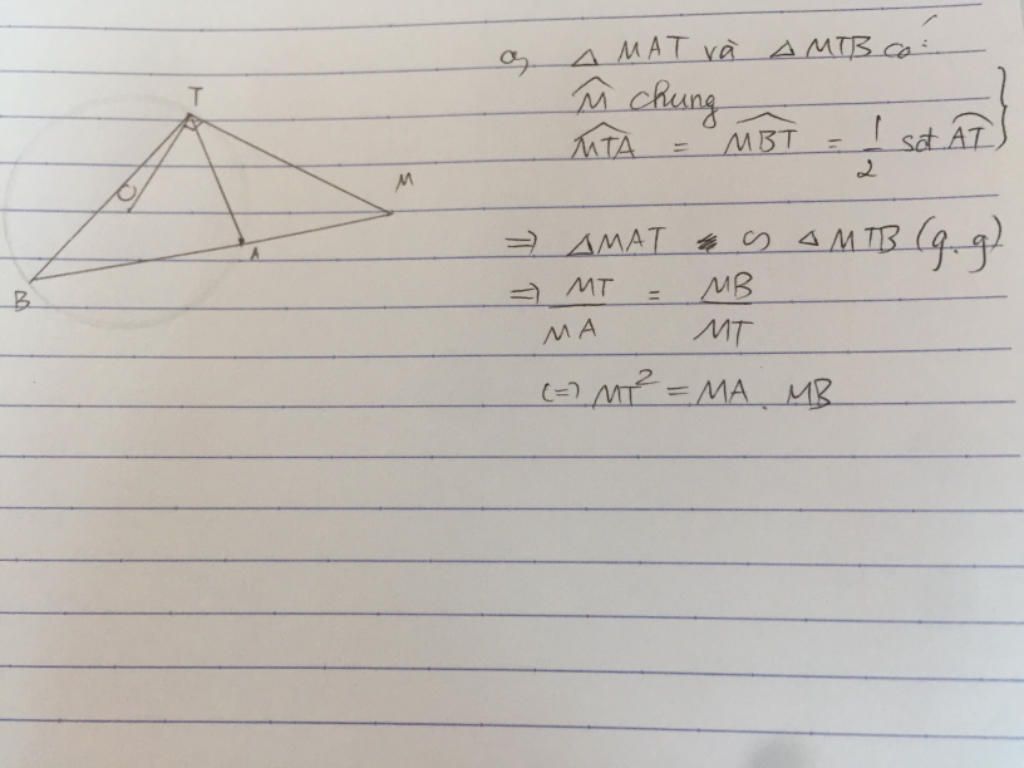 T
O
M
A
B
a, △ MAT và △ MTB có:
M̂ chung
M͡TA = M͡BT = 1/2 sđt A͡T }
=> △MAT ∽ △MTB (g.g)
=> MT/MA = MB/MT
<=> MT² = MA . MB